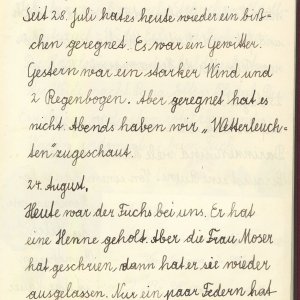 Seit 28. Juli hat es heute wieder ein biß-
chen geregnet. Es war ein Gewitter.
Gestern war ein starker Wind und
2 Regenbogen. Aber geregnet hat es
nicht. Abends haben wir „Wetterleuch-
ten" zugeschaut.
24. August.
Heute war der Fuchs bei uns. Er hat
eine Henne geholt. Aber die Frau Moser
hat geschrien, dann hat er sie wieder
ausgelassen. Nur ein paar Federn hat